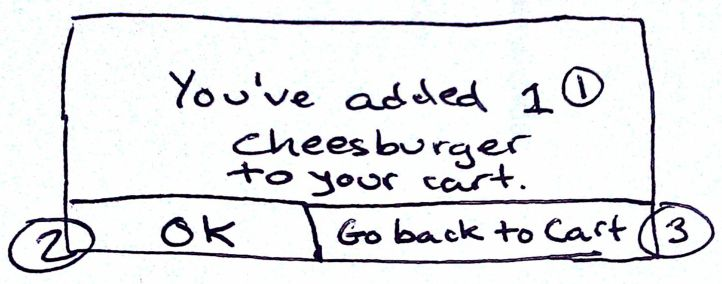 You've added 1 ①
cheesburger
to your cart.
② OK Go back to Cart ③